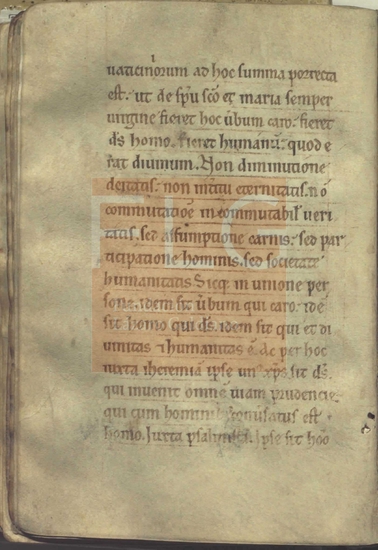 uaticinorum ad hoc summa porrecta
est. ut de spu sco et maria semper
uirgine fieret hoc uerbum caro. fieret
ds homo. fieret humanu. quod e
rat diuinum. Non diminutione
deitatis. non initiu eternitatis. no
commutatioe incommutabil ueri
tatis. sed assumptione carnis. sed par
ticipatione hominis. sed societate
humanitatis Sicq; in unione per
sone. idem sit ubum qui caro. ide
sit homo qui ds. idem sit qui et di
uinitas 7 humanitas e. Ac per hoc
iuxta iheremia ipse un xps sit ds.
qui inuenit omne uiam prudencie.
qui cum hominib; conuersatus est
homo. Iuxta psalmista. Ipse sit ho